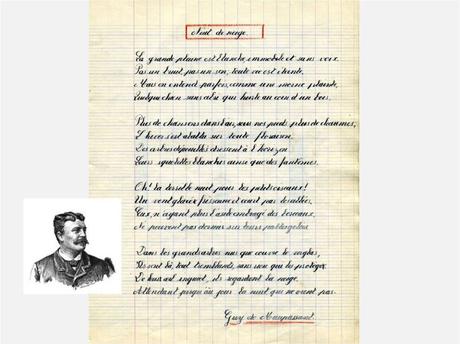 Nuit de neige.
La grande plaine est blanche, immobile et sans voix.
Pas un bruit, pas un son, toute vie est éteinte.
Mais on entend parfois, comme une morne plainte,
Quelque chien sans abri qui hurle au coin d'un bois.
Plus de chansons dans l'air, sous nos pieds plus de chaumes,
L'hiver s'est abattu sur toute floraison.
Des arbres dépouillés dressent à l'horizon
Leurs squelettes blanchis ainsi que des fantômes.
Oh! la terrible nuit pour les petits oiseaux!
Un vent glacé frissonne et court par les allées,
Eux, n'ayant plus l'asile ombragé des berceaux,
Ne peuvent pas dormir sur leurs pattes gelées.
Dans les grands arbres nus que couvre le verglas,
Ils sont là, tout tremblants, sans rien qui les protège.
De leur œil inquiet, ils regardent la neige,
Attendant jusqu'au jour la nuit qui ne vient pas.
Guy de Maupassant